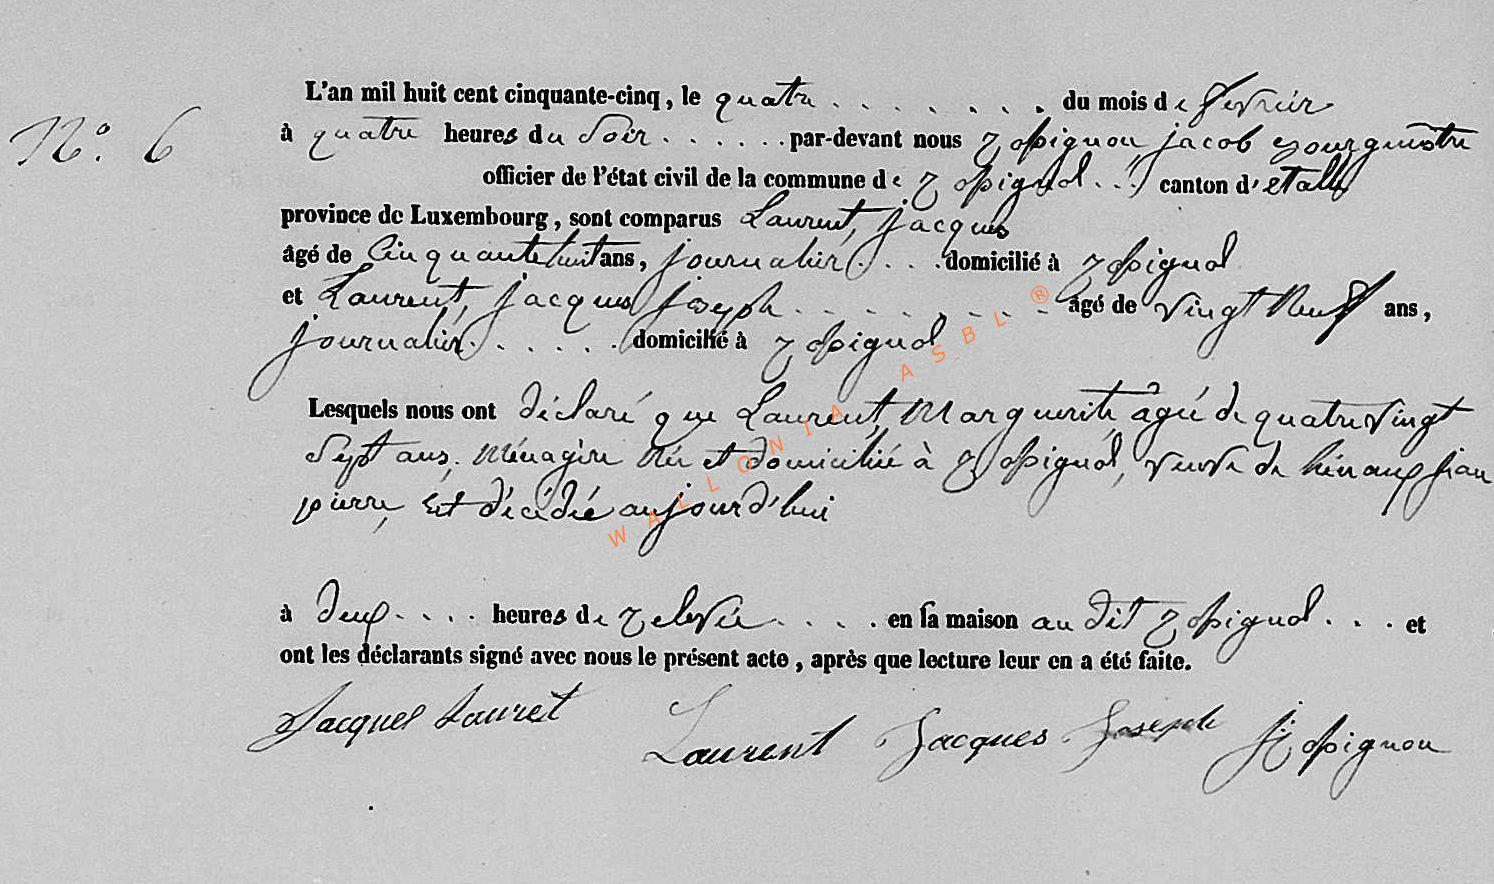 N° 6
L'an mil huit cent cinquante-cinq, le quatre . . . . . . . . du mois de fevrier
à quatre heures du Soir . . . . . . par-devant nous Rossignon jacob bourgmestre
officier de l'état civil de la commune de Rossignol . . . canton d'etalle
province de Luxembourg, sont comparus Laurent, jacques
âgé de Cinquante huit ans, journalier . . . . domicilié à Rossignol
et Laurent, jacques joseph . . . . . . . . . âgé de vingt Neuf ans,
journalier . . . . . domicilié à Rossignol
Lesquels nous ont déclaré que Laurent, Marguerite âgée de quatre vingt
Sept ans, Ménagère Née et domiciliée à Rossignol, veuve de hénaux jean
pierre, est décédée aujourd'hui
à deux . . . . heures de relevée . . . . . en sa maison au dit Rossignol . . . et
ont les déclarants signé avec nous le présent acte, après que lecture leur en a été faite.
Jacques Lauret Laurent Jacques Joseph J Rossignon
WALLONIA ASBL ®